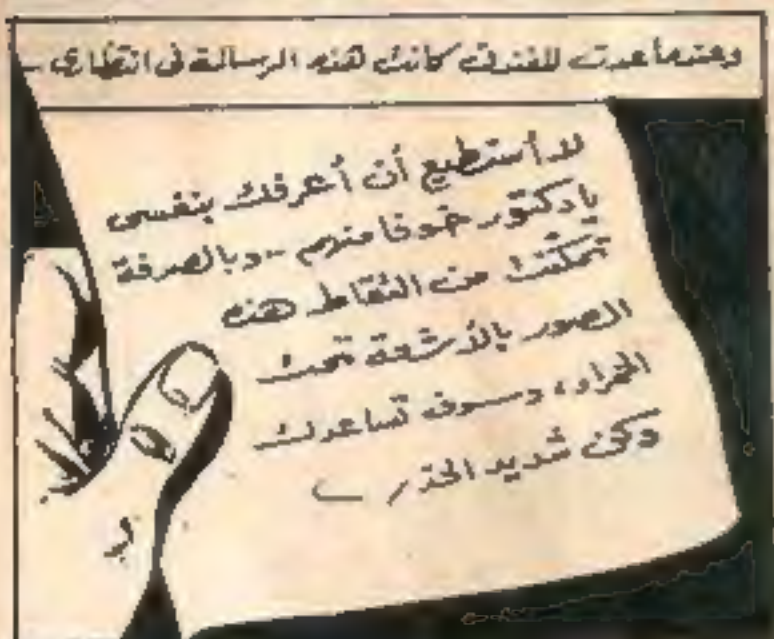 وعندما عدت للفندق كانت هذه الرسالة فى انتظارى ..
لا أستطيع أن أعرفك بنفسى
يا دكتور خوفا منهم .. وبالصدفة
تمكنت من التقاط هذه
الصور بالأشعة تحت
الحمراء، وسوف تساعدك
وكن شديد الحذر